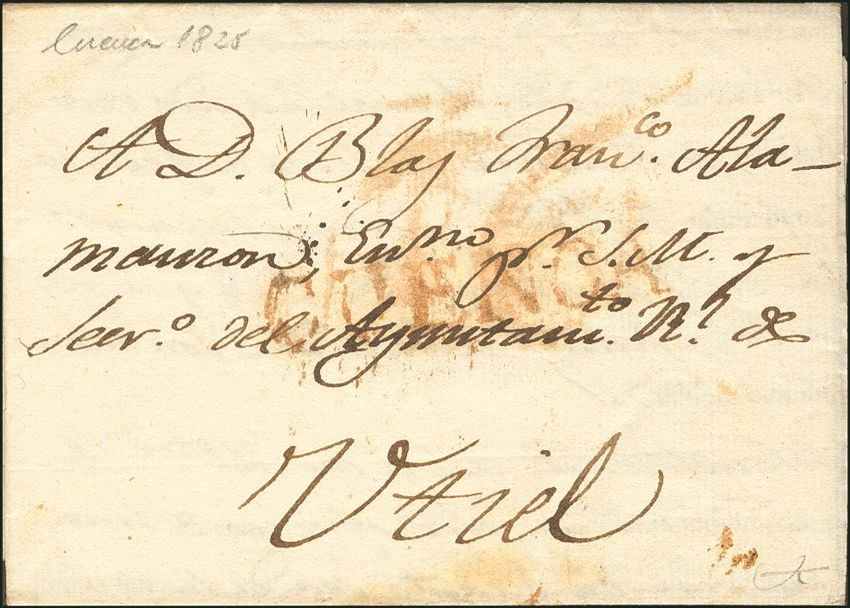 Cuenca 1828
A D. Blas Fran.co Ala-
manzon, Esn.no pr. S.M. y
Secr.o del Ayuntam.to Rl. de
CUENCA
Utiel